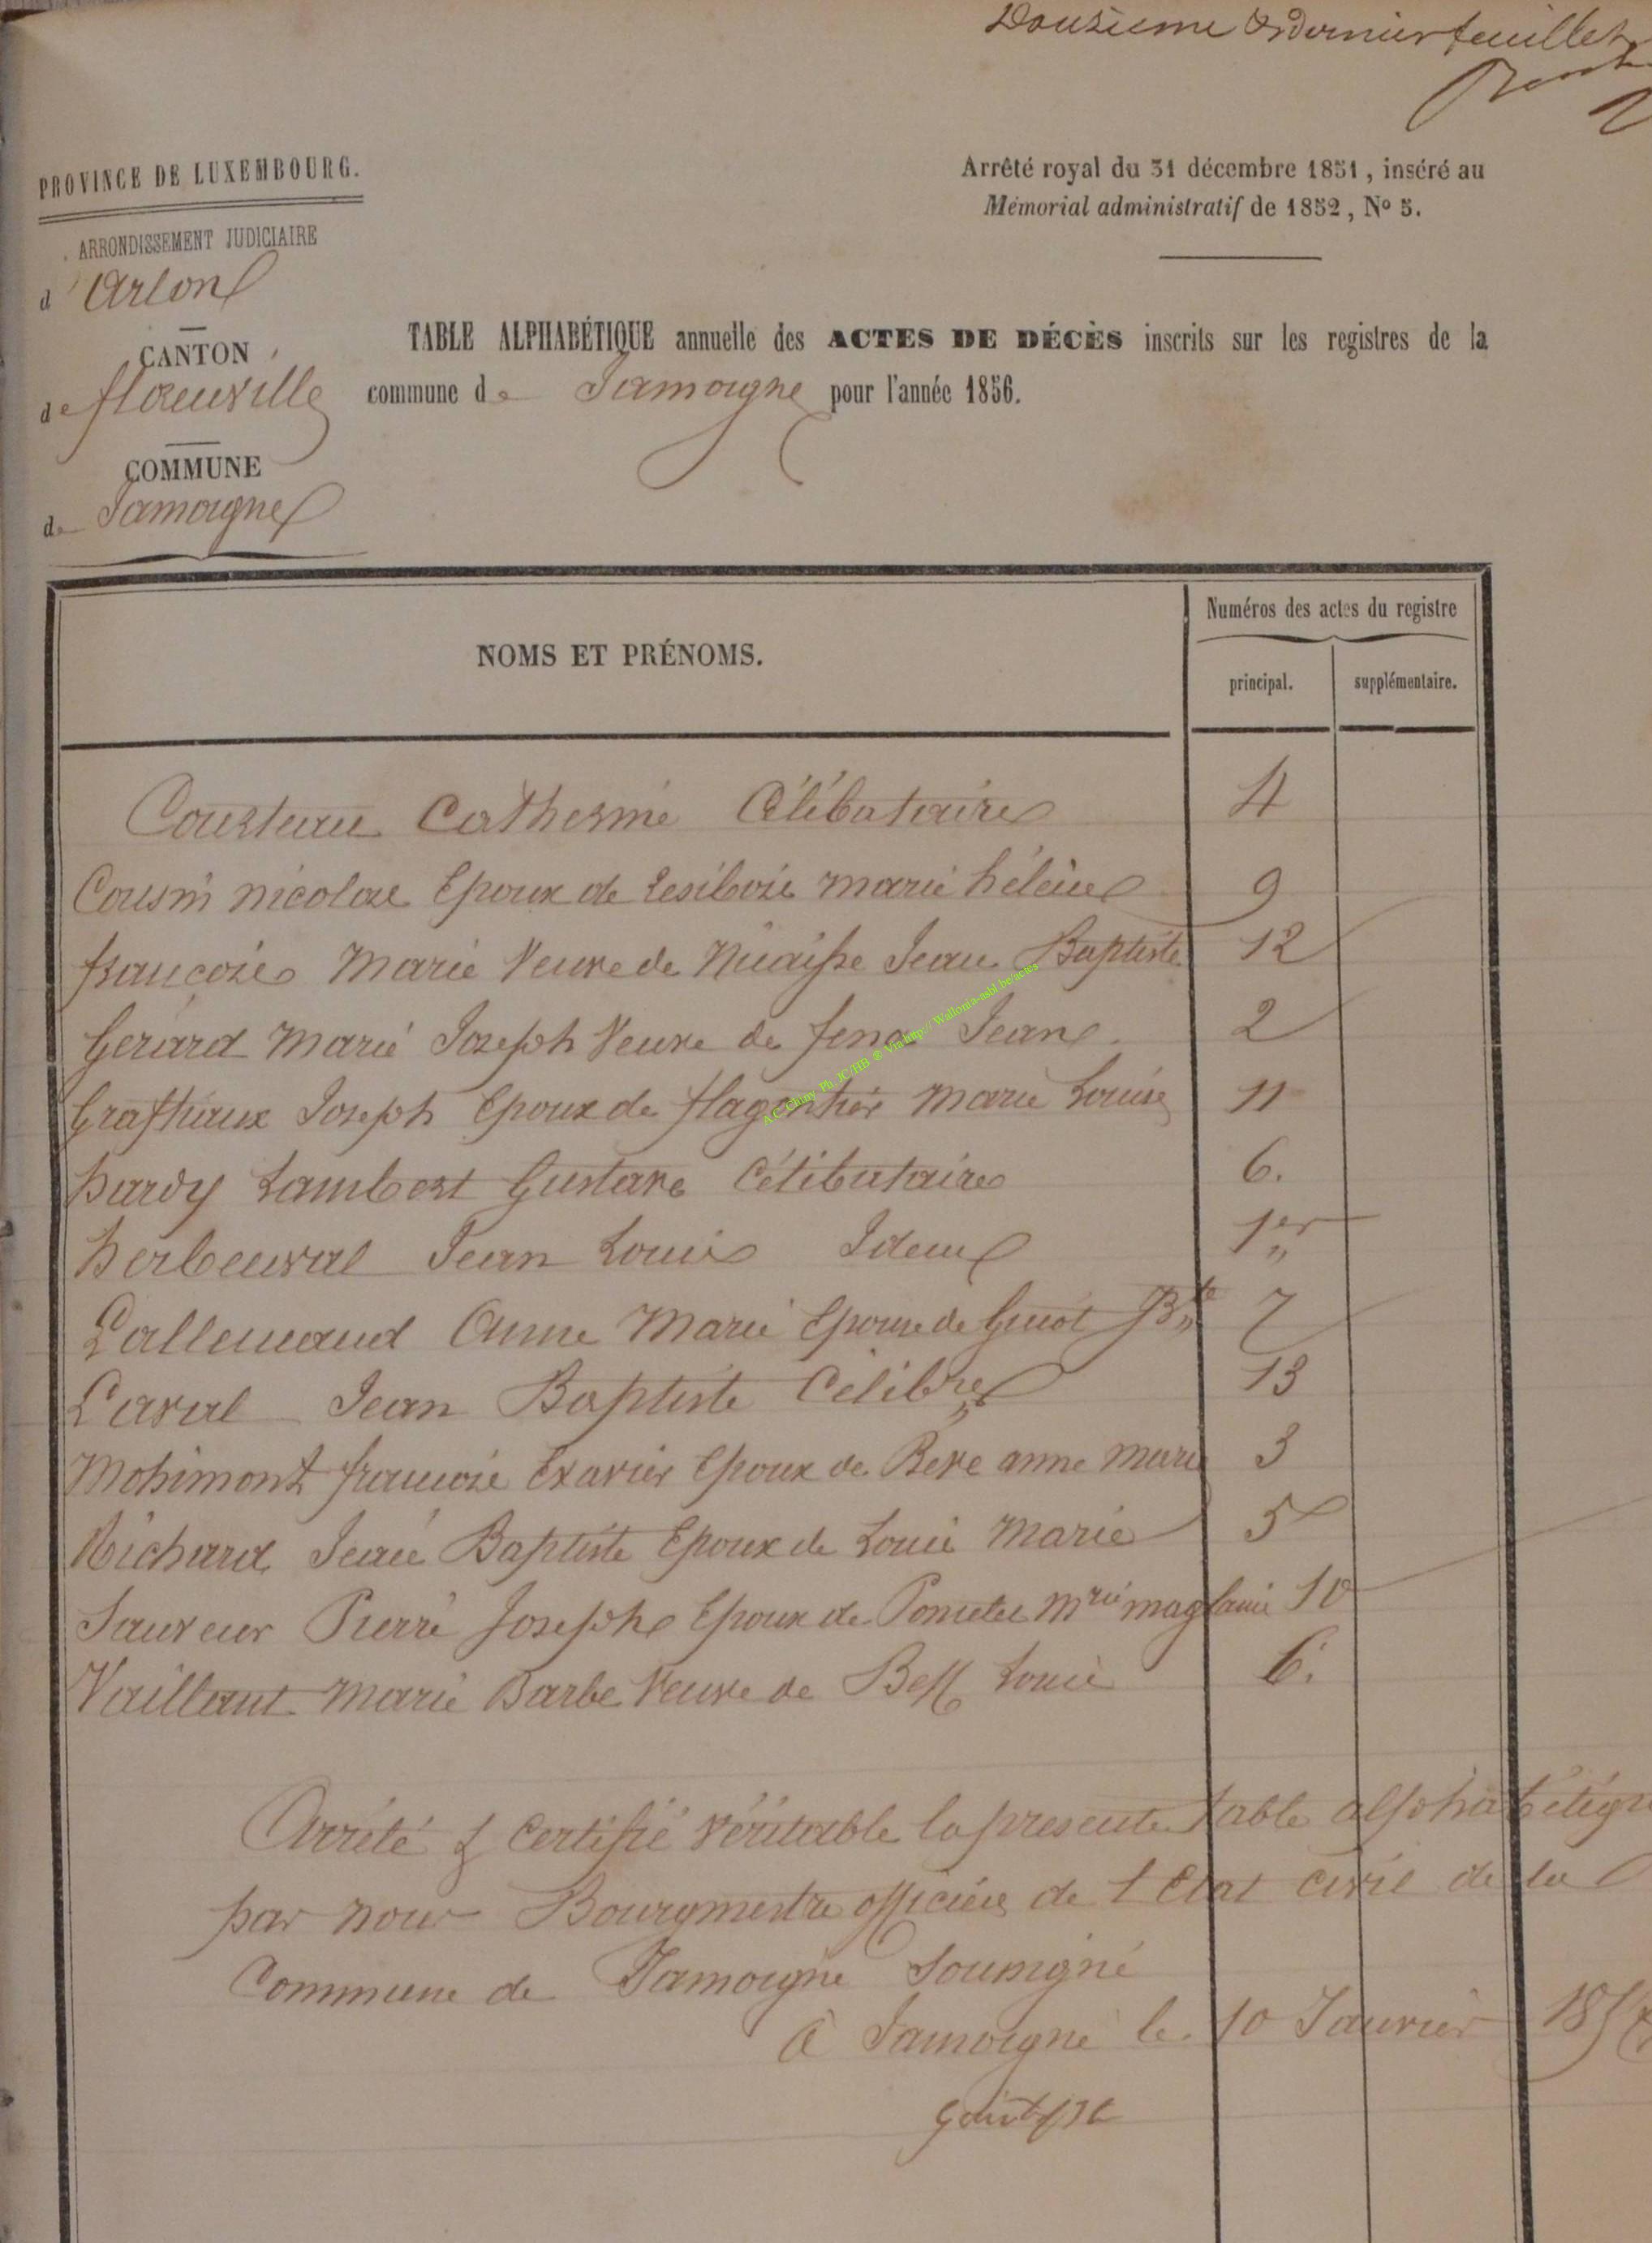 Douzieme & dernier feuillet
PROVINCE DE LUXEMBOURG.
Arrêté royal du 31 décembre 1851, inséré au
Mémorial administratif de 1852, No 5.
ARRONDISSEMENT JUDICIAIRE
d'Arlon
CANTON
de florenville
COMMUNE
de Jamoigne
TABLE ALPHABÉTIQUE annuelle des ACTES DE DÉCÈS inscrits sur les registres de la
commune de Jamoigne pour l'année 1856.
NOMS ET PRÉNOMS.
Numéros des actes du registre
principal. supplémentaire.
Catherine Célibataire 4
Cousin nicolas Epoux de marie hélène 9
francoise Marie Veuve de Nicaisse Jean Baptiste 12
Gerard Marie Joseph Veuve de Jean 2
Joseph Epoux de marie Louise 11
hardy Lambert Gustave Célibataire 6.
herbeuval Jean Louis Idem 1er
Lallemand Anne Marie Epouse de Guiot Bte 7
Laval Jean Baptiste Célibre 13
Mohimont francois Exavier Epoux de anne marie 3
Richard Jean Baptiste Epoux de Louis Marie 5
Sauveur Pierre Joseph Epoux de 10
Vaillant Marie Barbe Veuve de Louis 6.
Arrêté & Certifié véritable la presente table alphabétiqu
par nous Bourgmestre officier de l'Etat civil de la
Commune de Jamoigne Soussigné
A Jamoigne le 10 Janvier
A.C. Chiny Ph. JC/HB ® Via http:// Wallonia-asbl.be/actes